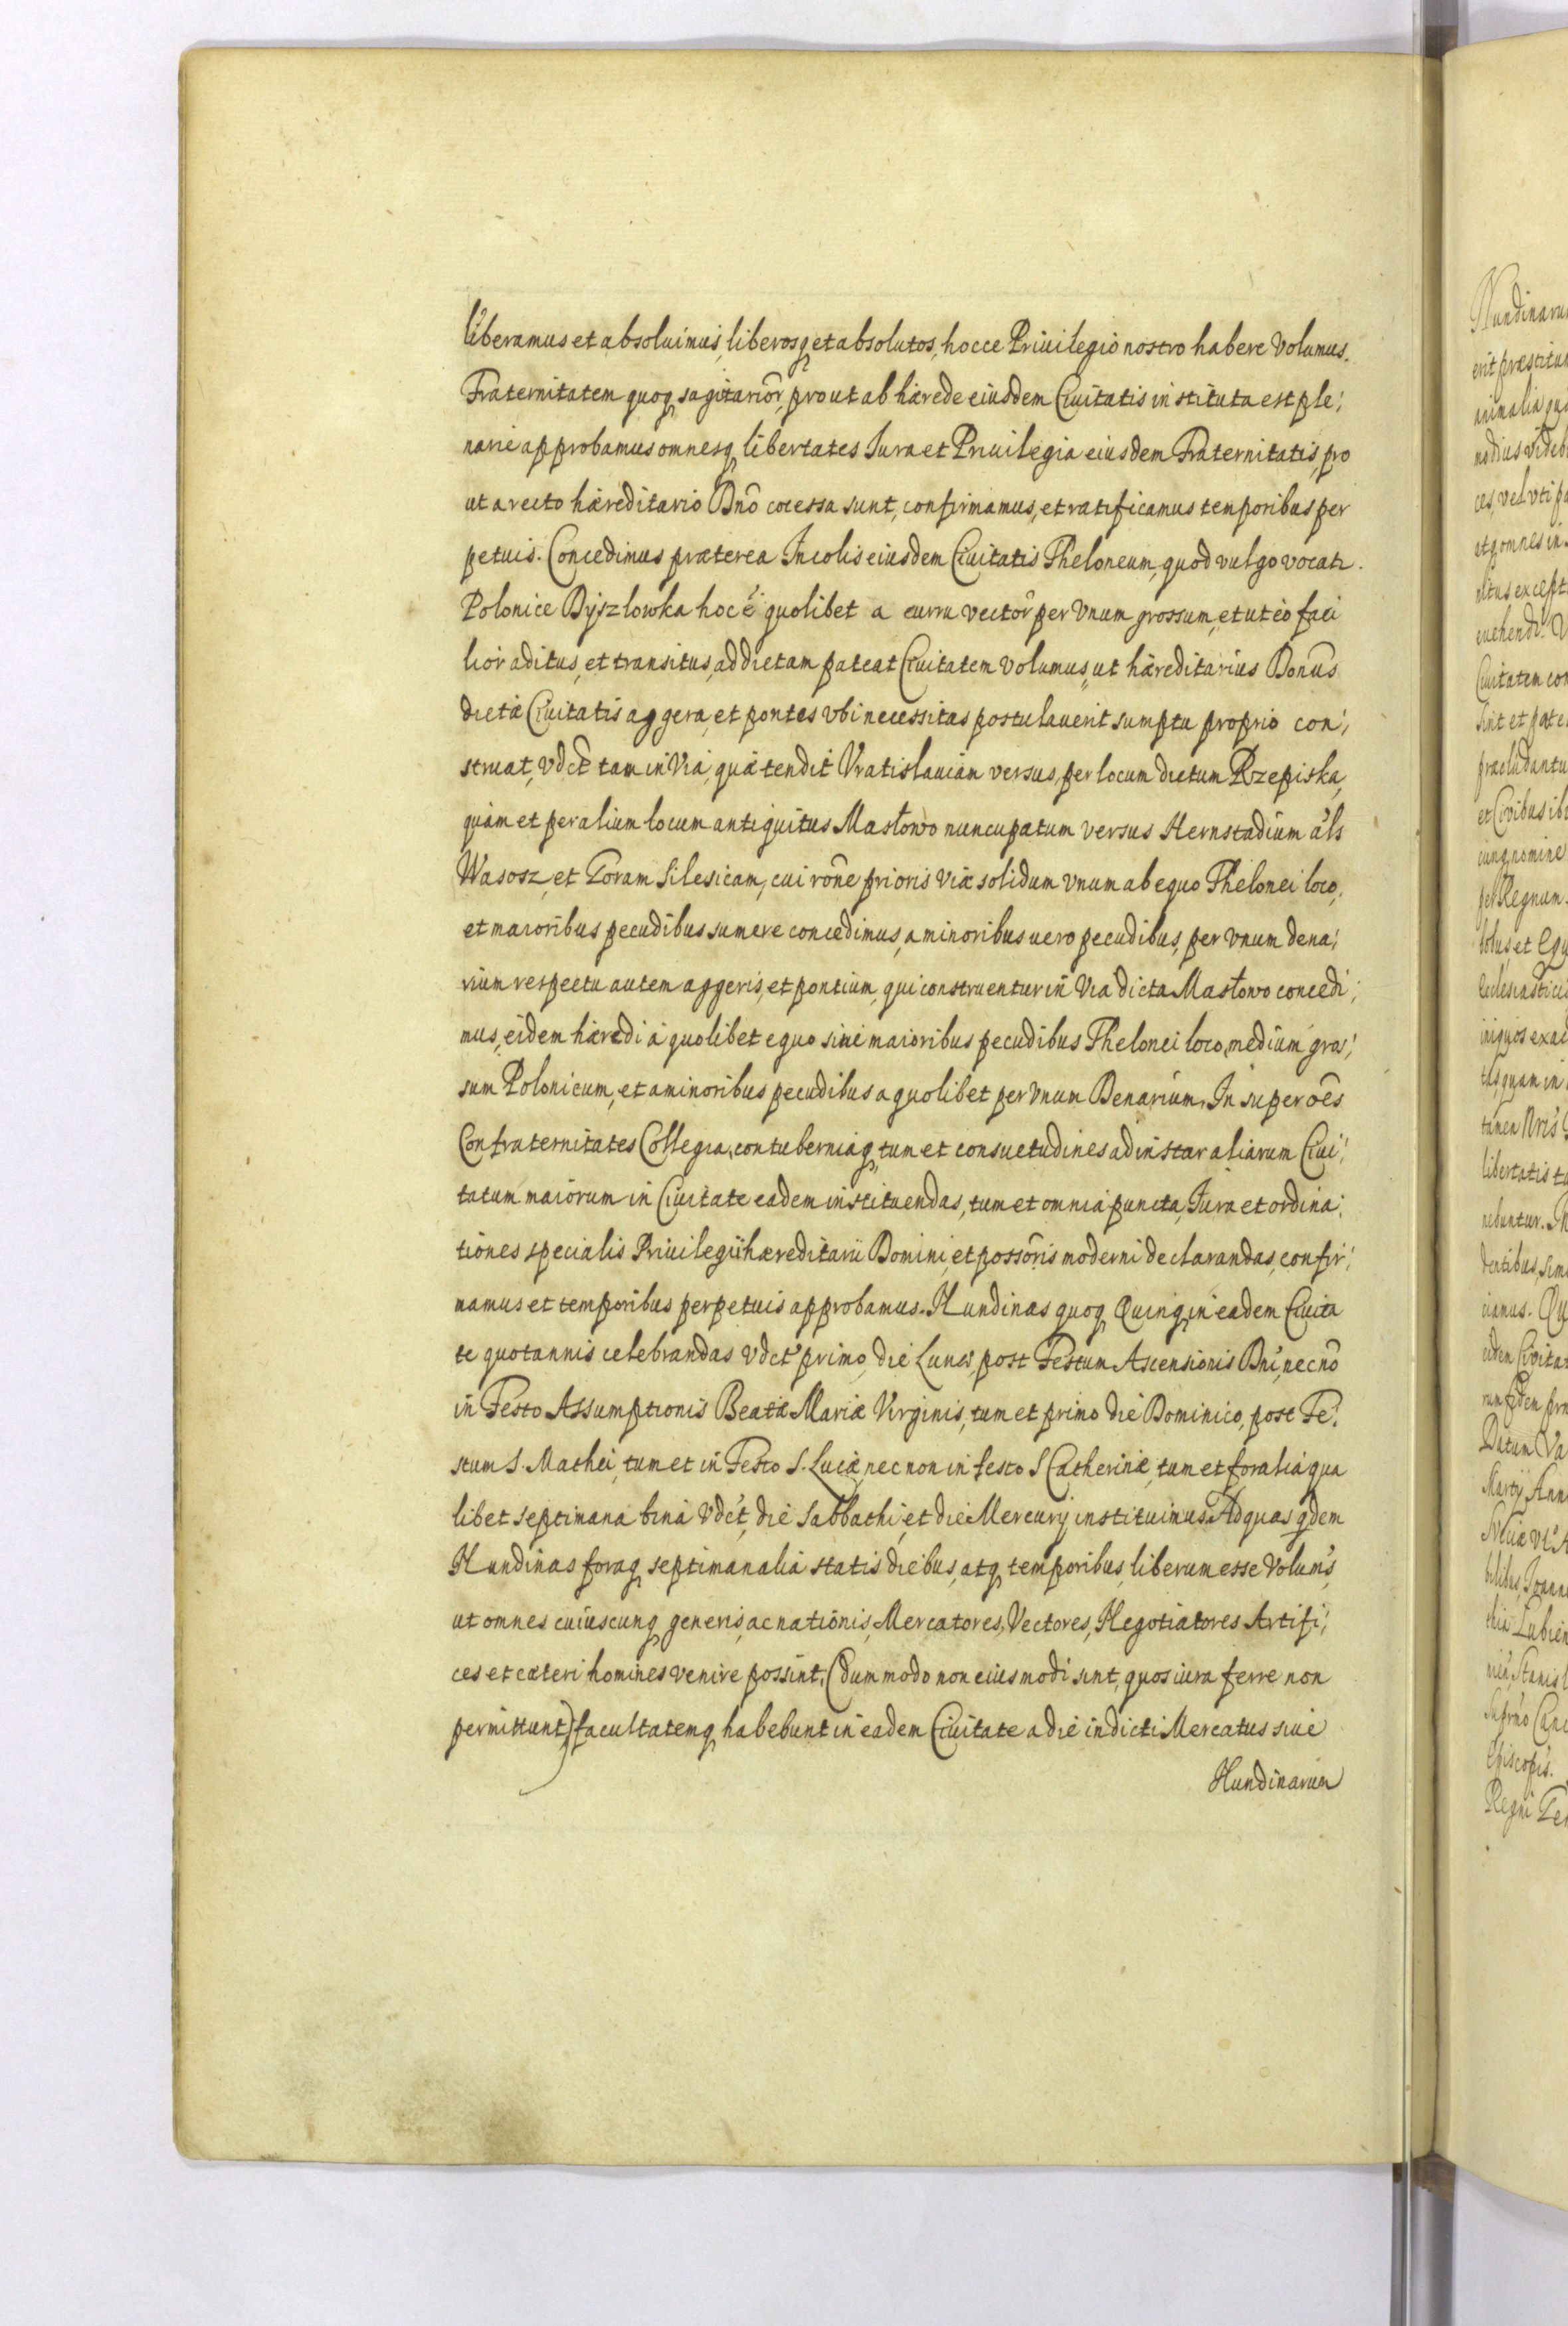 liberamus et absoluimus, liberosq et absolutos, hocce Priuilegio nostro habere Volumus.
Fraternitatem quoq sagitarior, prout ab hærede eiusdem Ciuitatis instituta est ple,
narie approbamus omnesq libertates Iura et Priuilegia eiusdem Fraternitatis, pro
ut a recto hæreditario Dnō cōcessa sunt, confirmamus, et ratificamus temporibus per
petuis. Concedimus præterea Incolis eiusdem Ciuitatis Theloneum, quod vulgo vocatr.
Polonice Dyszlowka hoc ē quolibet a curru vector per Vnum grossum, et ut eo faci
lior aditus, et transitus, ad dictam pateat Ciuitatem Volumus, ut hæreditarius Donūs
dictæ Ciuitatis aggera, et pontes vbi necessitas postulauerit sumptu proprio con,
struat, Vdct tam in Via, quæ tendit Vratislauiam versus, per locum dictum Rzepiska,
quam et per alium locum antiquitus Masłowo nuncupatum versus Hernstadium als
Wasosz, et Goram Silesicam, cui rōne prioris Viæ solidum Vnum ab equo Thelonei loco,
et maioribus pecudibus sumere concedimus, a minoribus uero pecudibus, per Vnum dena,
rium respectu autem aggeris, et pontium, qui construentur in Via dicta Masłowo concedi,
mus, eidem hæredi a quolibet equo siue maioribus pecudibus Thelonei loco, medium gros,
sum Polonicum, et a minoribus pecudibus a quolibet per Vnum Denarium, In super oēs
Confraternitates Collegia, contuberniaq, tum et consuetudines ad instar aliarum Ciui,
tatum maiorum in Ciuitate eadem instituendas, tum et omnia puncta, Iura et ordina,
tiones specialis Priuilegii hæreditarii Domini, et possōris moderni declarandas, confir,
mamus et temporibus perpetuis approbamus. Nundinas quoq Quinq in eadem Ciuita
te quotannis celebrandas Vdct primo, die Lunæ, post Festum Ascensionis Dnī, necnō
in Festo Assumptionis Beatæ Mariæ Virginis, tum et primo die Dominico, post Fe,
stum S. Mathei, tum et in Festo S. Luciæ, nec non in festo S Catherinæ, tum et foralia qua
libet septimana bina Vdct, die Sabbathi, et die Mercurij instituimus. Ad quas qdem
Nundinas foraq septimanalia statis diebus, atq temporibus, liberum esse Volums,
ut omnes cuiuscunq generis, ac nationis, Mercatores, Vectores, Negotiatores Artifi,
ces et cæteri homines venire possint, (dummodo non eiusmodi sint, quos iura ferre non
permittunt) facultatemq habebunt in eadem Ciuitate a die indicti Mercatus siue
Nundinarum